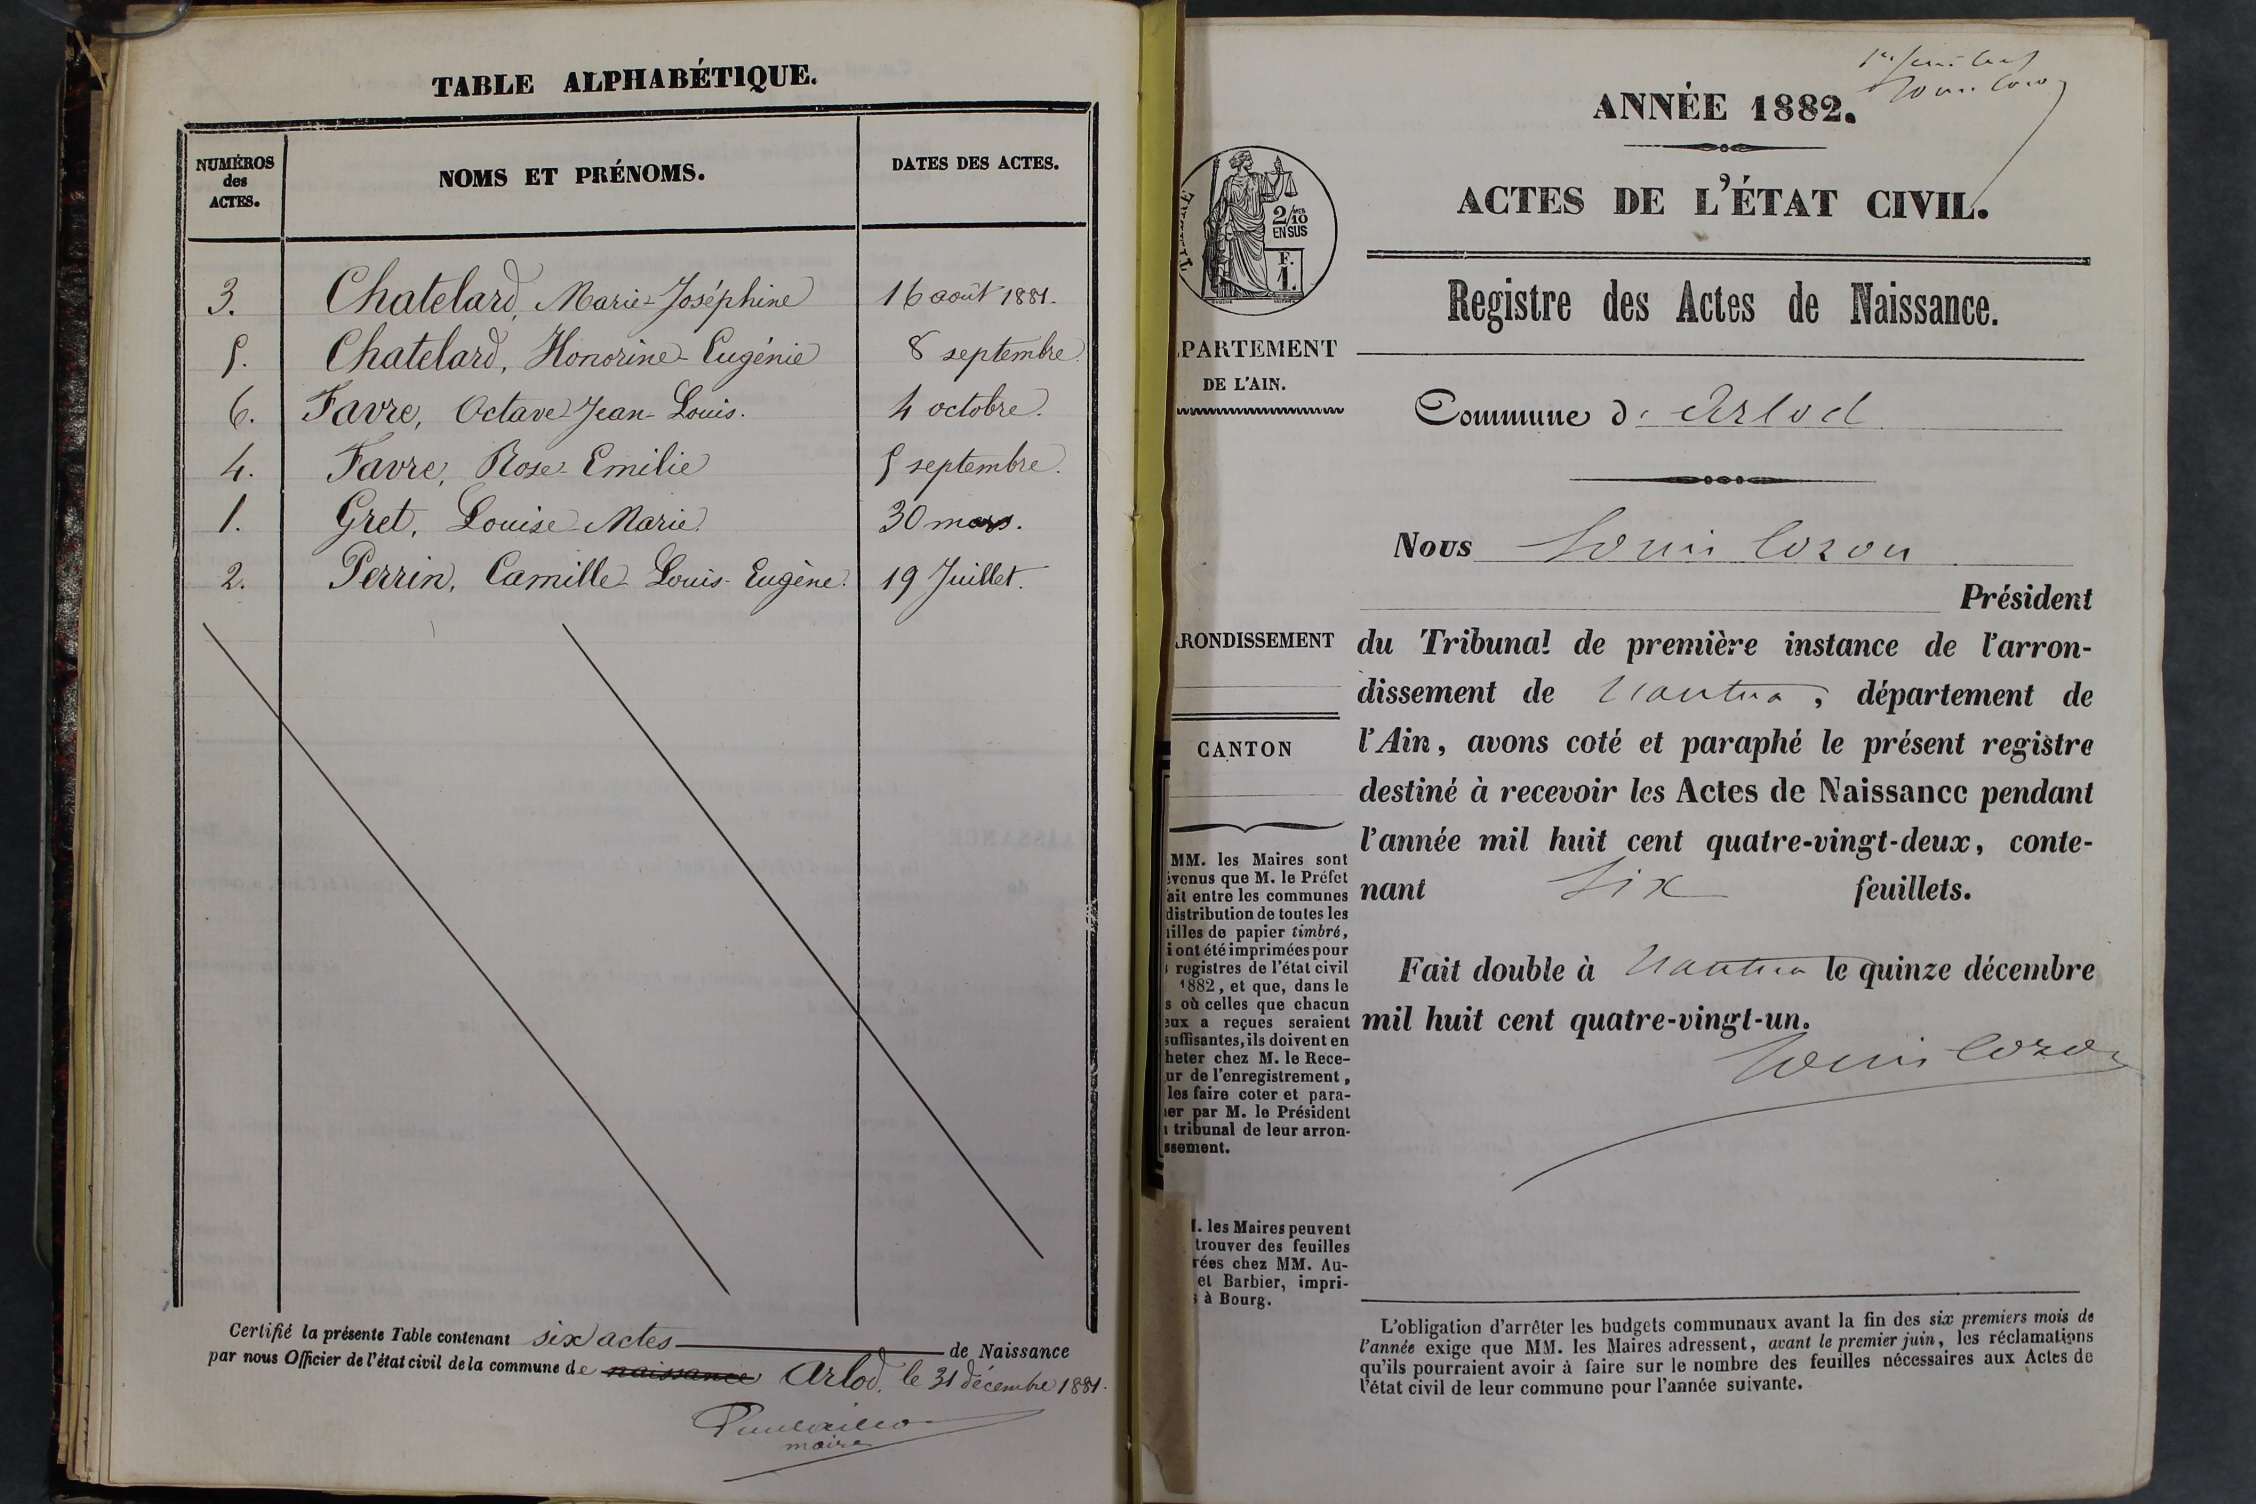 TABLE ALPHABÉTIQUE.
NUMÉROS
des
ACTES.
NOMS ET PRÉNOMS.
DATES DES ACTES.
3. Chatelard, Marie-Joséphine 16 août 1881.
5. Chatelard, Honorine-Eugénie 8 septembre.
6. Favre, Octave Jean-Louis. 4 octobre.
4. Favre, Rose-Emilie 5 septembre.
1. Gret, Louise-Marie 30 mars.
2. Perrin, Camille Louis-Eugène. 19 Juillet.
Certifié la présente Table contenant six actes de Naissance
par nous Officier de l'état civil de la commune de naissance Arlod, le 31 décembre 1881.
maire
ANNÉE 1882.
ACTES DE L'ÉTAT CIVIL.
2/10
EN SUS
F.
1.
Registre des Actes de Naissance.
PARTEMENT
DE L'AIN.
Commune d' Arlod
Nous Louis Cozon
Président
RONDISSEMENT
du Tribunal de première instance de l'arron-
dissement de Nantua, département de
CANTON
l'Ain, avons coté et paraphé le présent registre
destiné à recevoir les Actes de Naissance pendant
l'année mil huit cent quatre-vingt-deux, conte-
nant six feuillets.
Fait double à Nantua le quinze décembre
mil huit cent quatre-vingt-un.
Louis Cozon
MM. les Maires sont
venus que M. le Préfet
ait entre les communes
distribution de toutes les
illes de papier timbré,
i ont été imprimées pour
registres de l'état civil
1882, et que, dans le
s où celles que chacun
eux a reçues seraient
suffisantes, ils doivent en
heter chez M. le Rece-
ur de l'enregistrement,
les faire coter et para-
er par M. le Président
tribunal de leur arron-
ssement.
. les Maires peuvent
trouver des feuilles
rées chez MM. Au-
et Barbier, impri-
s à Bourg.
L'obligation d'arrêter les budgets communaux avant la fin des six premiers mois de
l'année exige que MM. les Maires adressent, avant le premier juin, les réclamations
qu'ils pourraient avoir à faire sur le nombre des feuilles nécessaires aux Actes de
l'état civil de leur commune pour l'année suivante.